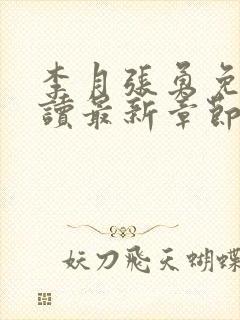 李月張勇免
讀最新章節
妖刀飛天蝴蝶